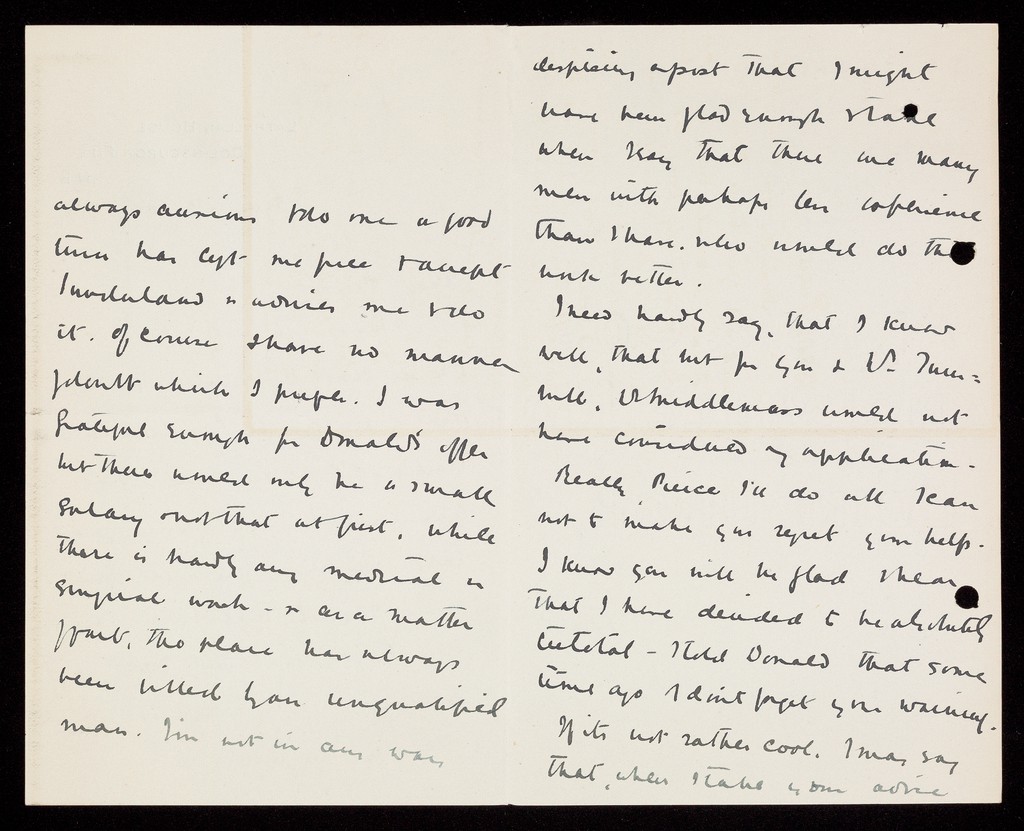 always anxious to do me a good
turn has left me free to accept
Sunderland & advises me to do
it. Of course I have no manner
of doubt which I prefer. I was
grateful enough for Donald's offer
but there would only be a small
salary & not that at first, while
there is hardly any medical or
surgical work - & as a matter
of fact, the place has always
been filled by an unqualified
man. I'm not in any way
despising a post that I might
have been glad enough to take
when I say that there are many
men with perhaps less experience
than I have, who would do the
work better.
I need hardly say, that I know
well, that but for you & Dr Turn=
bull, Dr Middlemass would not
have considered my application.
Really Pierce I'll do all I can
not to make you regret your help.
I know you will be glad to hear
that I have decided to be absolutely
teetotal - I told Donald that some
time ago I don't forget your warning.
If it's not rather cool, I may say
that, when I take your advice